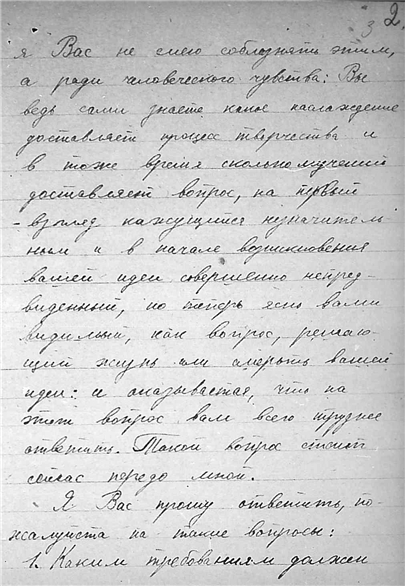 3 2.
я Вас не смею соблазнять этим,
а ради человеческого чувства: Вы
ведь сами знаете какое наслаждение
доставляет процесс творчества и
в тоже время сколько мучений
доставляет вопрос, на первый
-взгляд кажущийся незначитель-
ным и в начале возникновения
вашей идеи совершенно непред-
виденный, но теперь ясно вами
видимый, как вопрос, решаю-
щий жизнь или смерть вашей
идеи: и оказывается, что на
этот вопрос вам всего труднее
ответить. Такой вопрос стоит
сейчас передо мной.
Я Вас прошу ответить, по-
жалуйста на такие вопросы:
1. Каким требованиям должен